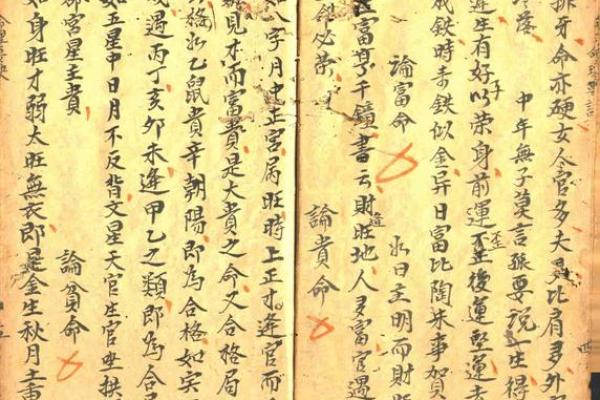 排牙命亦硬女人官多夫是比肩多外
中年無子莫言孫要說一生得
進生有好子以荣身前運歪後運堅運去
成鉄時未鉄似金异日富比陶朱事賀
論富命
水日主明而財
富享千鐘書云財旺地人多富官遇
命必荣
論貴命
八字月中正官居旺時上正才逢官而
見才而富貴是大貴之命又合格局
格如乙鼠貴辛朝陽即為合格如寅
遇丙丁亥卯未逢甲乙之類即為合
如五星中日月不反背文星天官生官坐拱
官星主貴
論貧命
如身旺才弱太旺無衣即是金生秋月土重